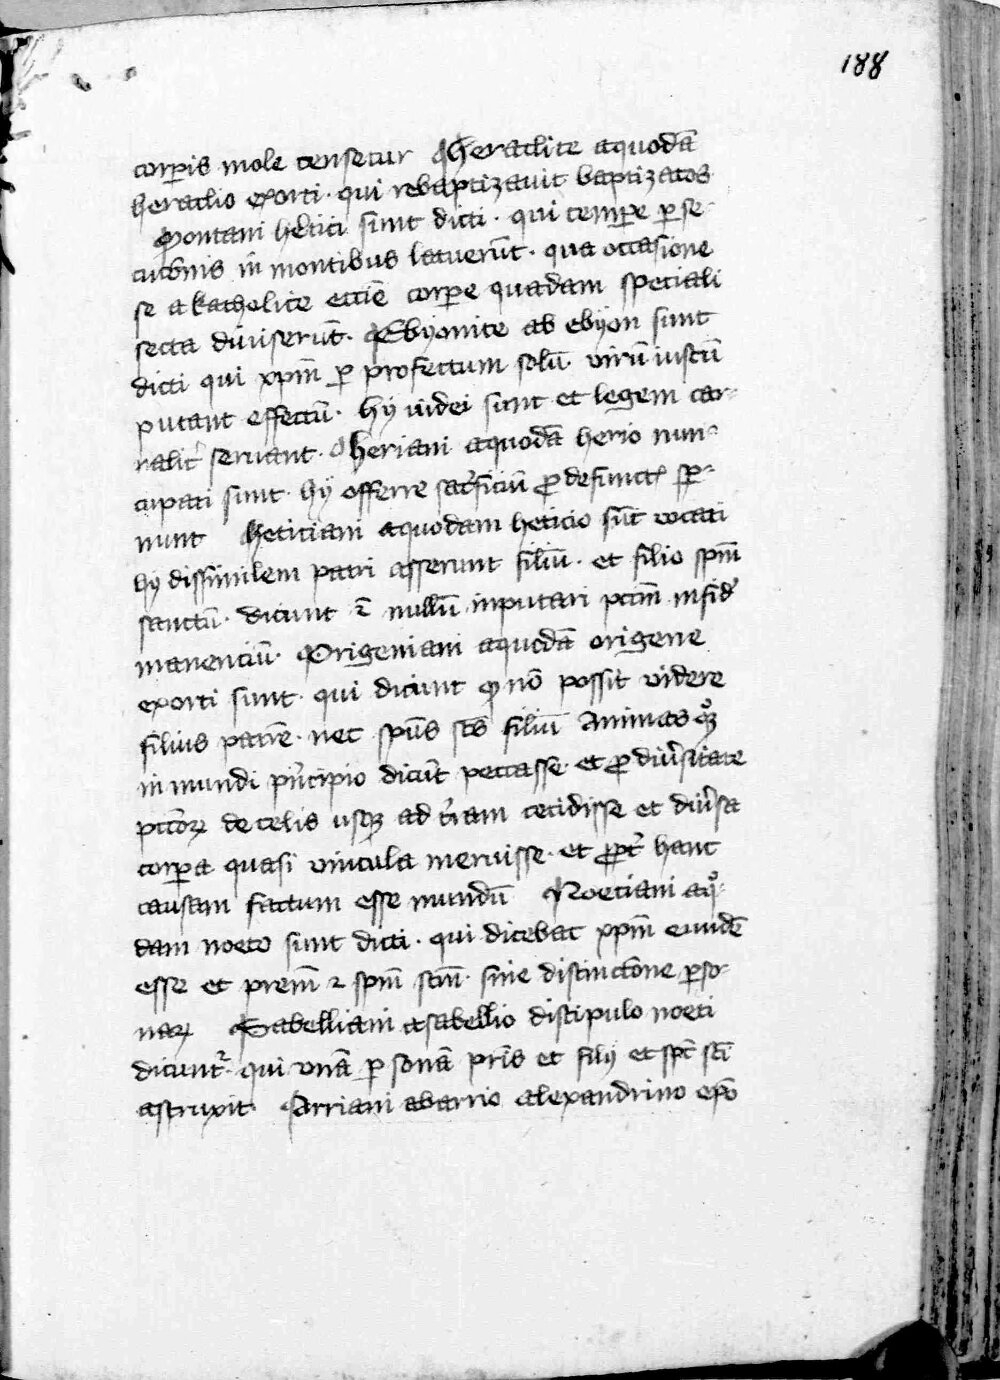 188
corꝑis mole censetur Heraclite aquodā
heraclio exorti · qui rebaptizauit baptizatos
Montani hetici sunt dicti · qui tempore ꝑse-
cucōnis in montibus latuerūt · qua occasione
se a katholice eccīe corꝑe quadam speciali
secta diuiserūt · Ebyonite ab ebyon sunt
dicti qui xp̄m ꝑ profectum solū · virū iustū
putant effectū · hij iudei sunt et legem car-
nalit̓ seruant · heriani aquodā herio nun-
cupati sunt · hij offerre sac̓ficiū ꝓ defunct sper-
nunt heticiani aquodam heticio sūt vocati
hij dissimilem patri asserunt filiū · et filio sp̄m
sanctū · dicunt ⁊ nullū inputari pccm̄ in fid̓
manenciū · Origeniani aquodā origene
exorti sunt · qui dicunt ꝙ nō possit videre
filius patrē · nec sp̄us scs̄ filiū Animas qͦꝫ
in mundi pͥncipio dicūt peccasse · et ꝓ diu̓sitate
pccōꝝ de celis usqꝫ ad t̓ram cecidisse et diu̓sa
corꝑa quasi vincula meruisse · et ꝓpt̓ hanc
causam factum esse mundū Noetiani aqͦ-
dam noeto sunt dicti · qui dicebat xp̄m eundē
esse et prem̄ ⁊ sp̄m scm̄ · sine distinctōne ꝑso-
naꝝ Sabelliani a sabellio discipulo noeti
dicunt᷑ · qui vnā ꝑsonā pr̄is et filij et spc̄ scī
astruxit · Arriani abarrio alexandrino ep̄o